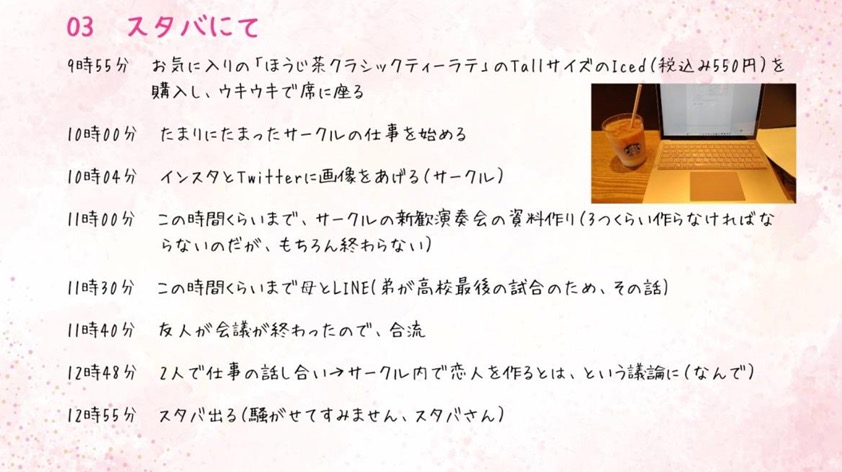 03 スタバにて
9時55分 お気に入りの「ほうじ茶クラシックティーラテ」のTallサイズのIced(税込み550円)を
購入し、ウキウキで席に座る
10時00分 たまりにたまったサークルの仕事を始める
10時04分 インスタとTwitterに画像をあげる(サークル)
11時00分 この時間くらいまで、サークルの新歓演奏会の資料作り(3つくらい作らなければな
らないのだが、もちろん終わらない)
11時30分 この時間くらいまで母とLINE(弟が高校最後の試合のため、その話)
11時40分 友人が会議が終わったので、合流
12時48分 2人で仕事の話し合い→サークル内で恋人を作るとは、という議論に(なんで)
12時55分 スタバ出る(騒がせてすみません、スタバさん)